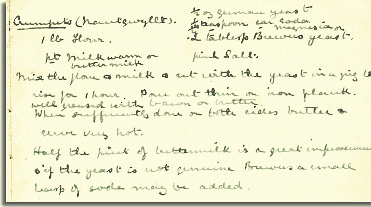 Crumpets (Nantgwyllt). ½ oz german yeast
½ teaspoon car soda
1 lb flour, magnesia or
2 tablesp Brewers yeast,
pt Milk warm or pinch Salt.
buttermilk
Mix the flour & milk & set with the yeast in a jug to
rise for 1 hour. Pour out thin on iron plank.
well greased with bacon or butter
When sufficiently done on both sides butter &
serve very hot.
Half the pint of buttermilk is a great improvement
& if the yeast is not genuine Brewers a small
teasp of soda may be added.